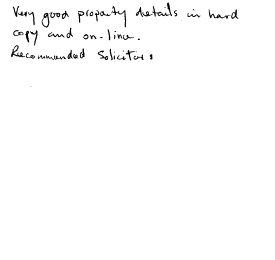 Very good property details in hard
copy and on-line.
Recommended Solicitors